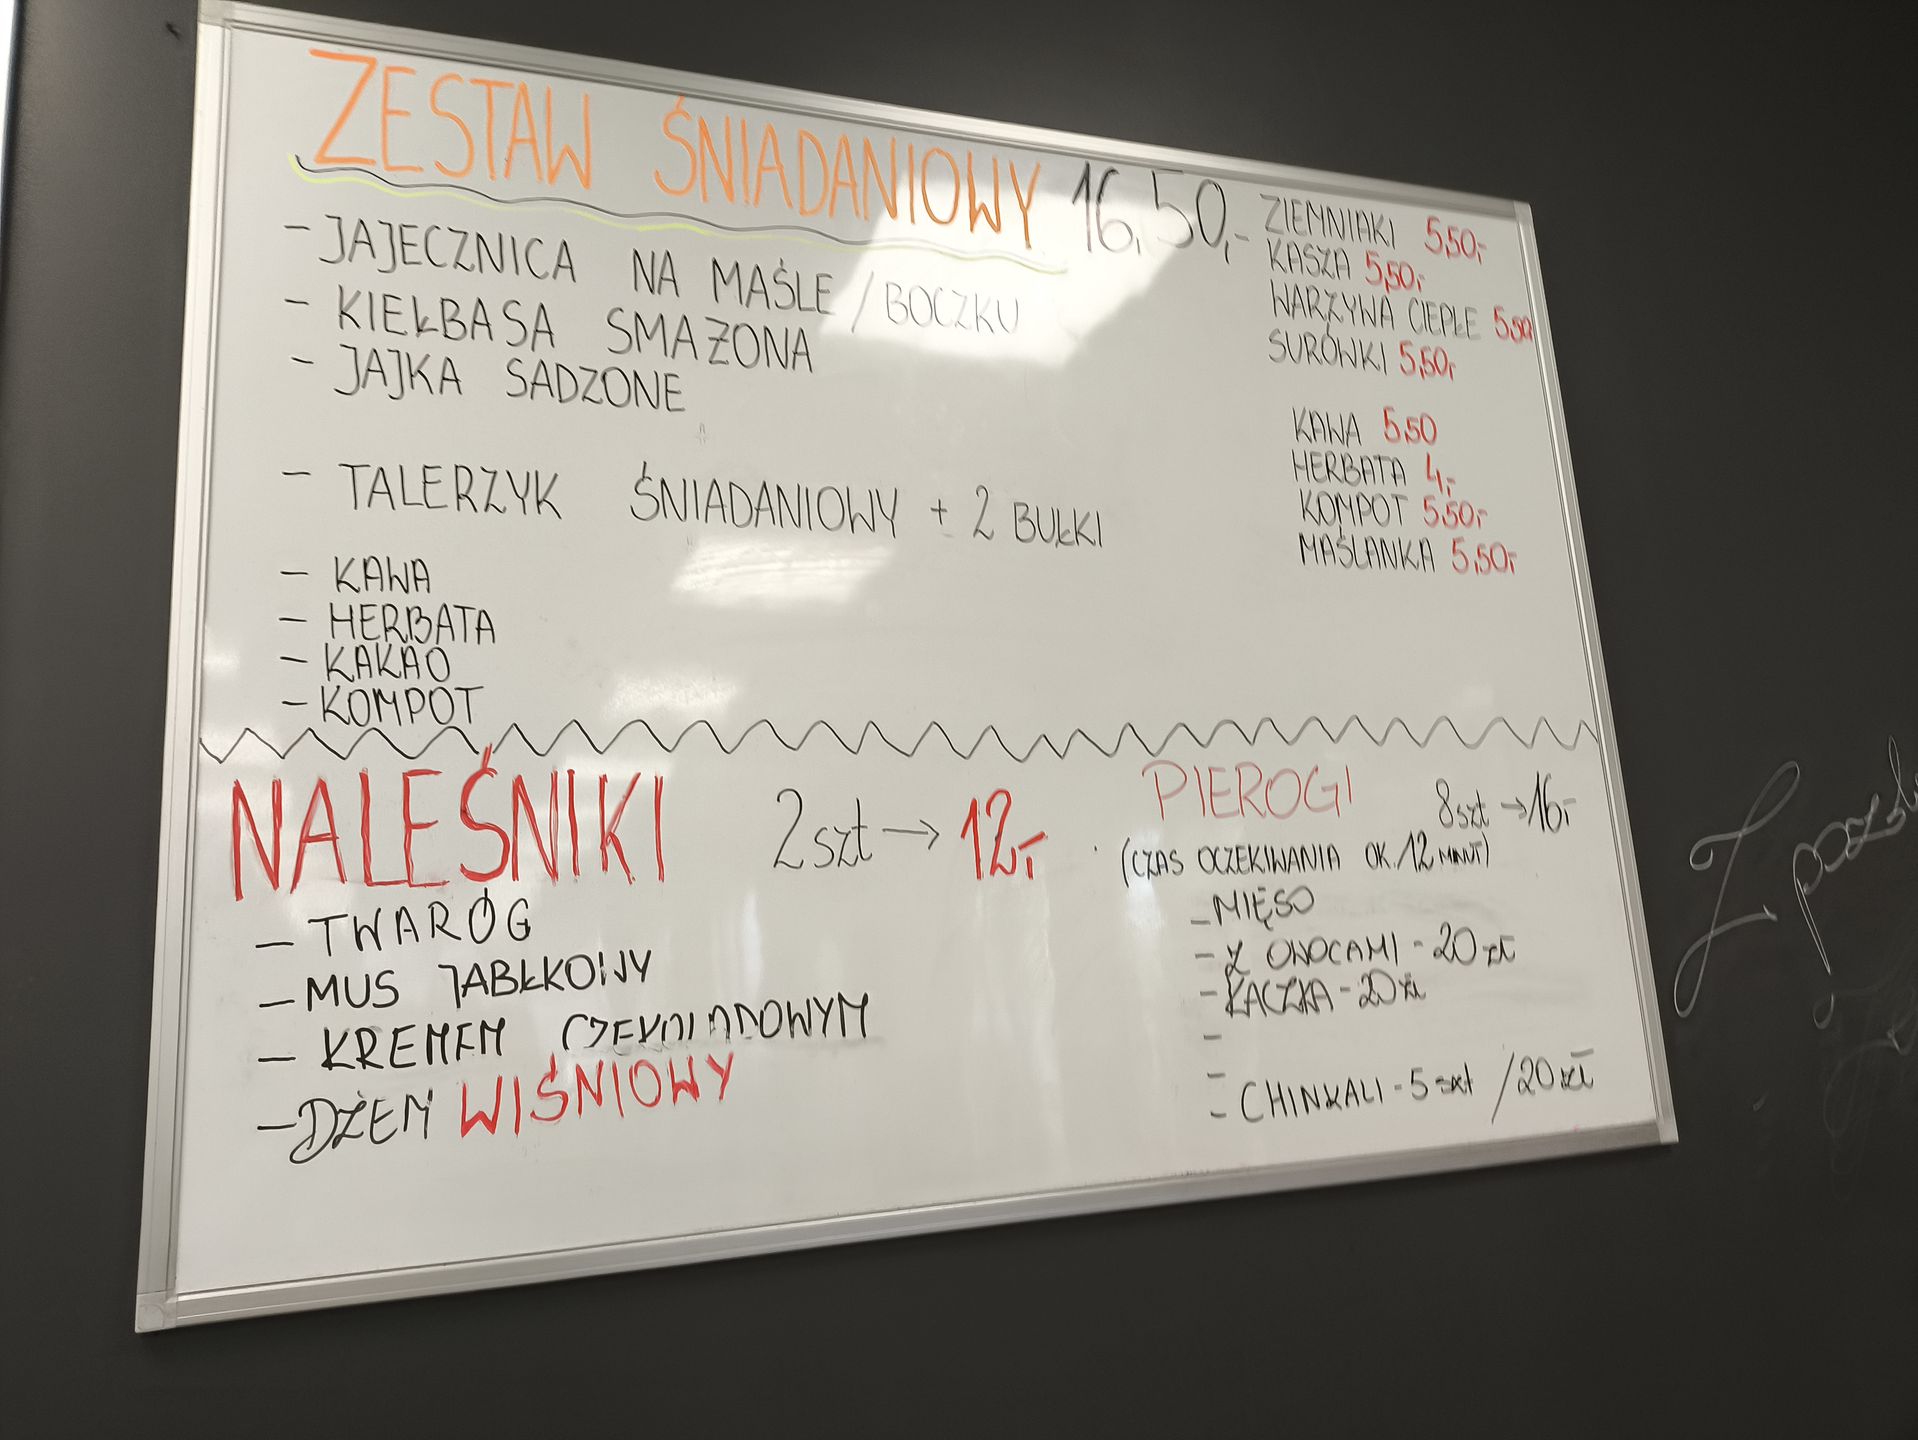 ZESTAW ŚNIADANIOWY 16,50,-
- JAJECZNICA NA MAŚLE / BOCZKU
- KIEŁBASA SMAŻONA
- JAJKA SADZONE
- TALERZYK ŚNIADANIOWY + 2 BUŁKI
- KAWA
- HERBATA
- KAKAO
- KOMPOT
ZIEMNIAKI 5,50,-
KASZA 5,50,-
WARZYWA CIEPŁE 5,50
SURÓWKI 5,50,-
KAWA 5,50
HERBATA 4,-
KOMPOT 5,50,-
MAŚLANKA 5,50,-
NALEŚNIKI 2 szt → 12,-
- TWARÓG
- MUS JABŁKOWY
- KREMEM CZEKOLADOWYM
- DŻEM WIŚNIOWY
PIEROGI 8 szt → 16,-
(CZAS OCZEKIWANIA OK. 12 MINUT)
- MIĘSO
- Z OWOCAMI - 20 zł
- KACZKA - 20 zł
-
-
- CHINKALI - 5 szt / 20 zł
Z